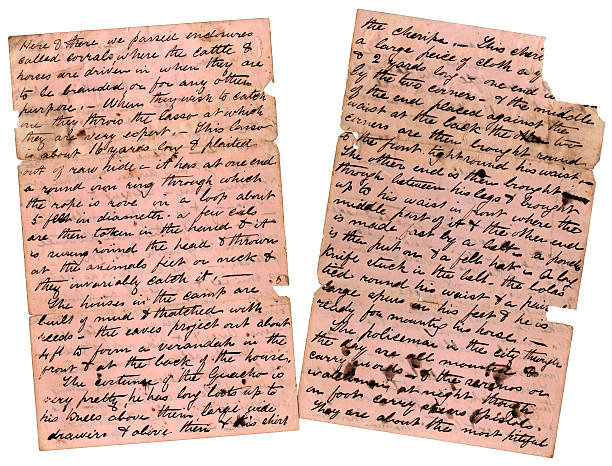 Here & there we passed enclosures
called corrals where the cattle &
horses are driven in when they are
to be branded or for any other
purpose. — When they wish to catch
one they throw the lasso at which
they are very expert. — This lasso
is about 16 yards long & plaited
out of raw hide — it has at one end
a round iron ring through which
the rope is rove in a loop about
5 feet in diameter. a few coils
are then taken in the hand & it
is swung round the head & thrown
at the animals feet or neck &
they invariably catch it —
The houses in the camp are
built of mud & thatched with
reeds — the eaves project out about
4 ft to form a verandah in the
front & at the back of the house.
The costume of the Guacho is
very pretty he has long boots up to
his knees above them large wide
drawers & above them & his shirt
the cheripa. — This
a large peice of cloth
& 2 yards long — one end
by the two corners — & the middle
of the end placed against the
waist at the back the two
corners are then brought round
to the front, tight round his waist
The other end is then brought
through between his legs & brought
up to his waist in front where the
middle part of it & the other end
is made fast by a belt — a poncho
is then put on & a felt hat — a long
knife stuck in the belt. the bolas
tied round his waist & a pair
large spurs on his feet & he is
ready for mounting his horse. —
The policeman in the city through
the day are all mounted &
carry swords — & the serenos or
watchmen at night though
on foot carry spears & pistols.
They are about the most pitiful